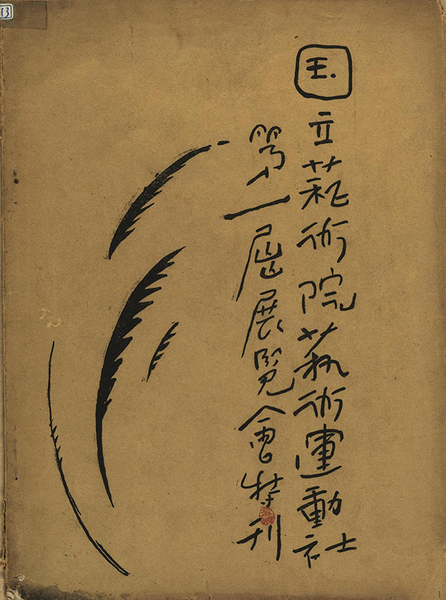 国立藝術院藝術運動社
第一屆展覽會特刊